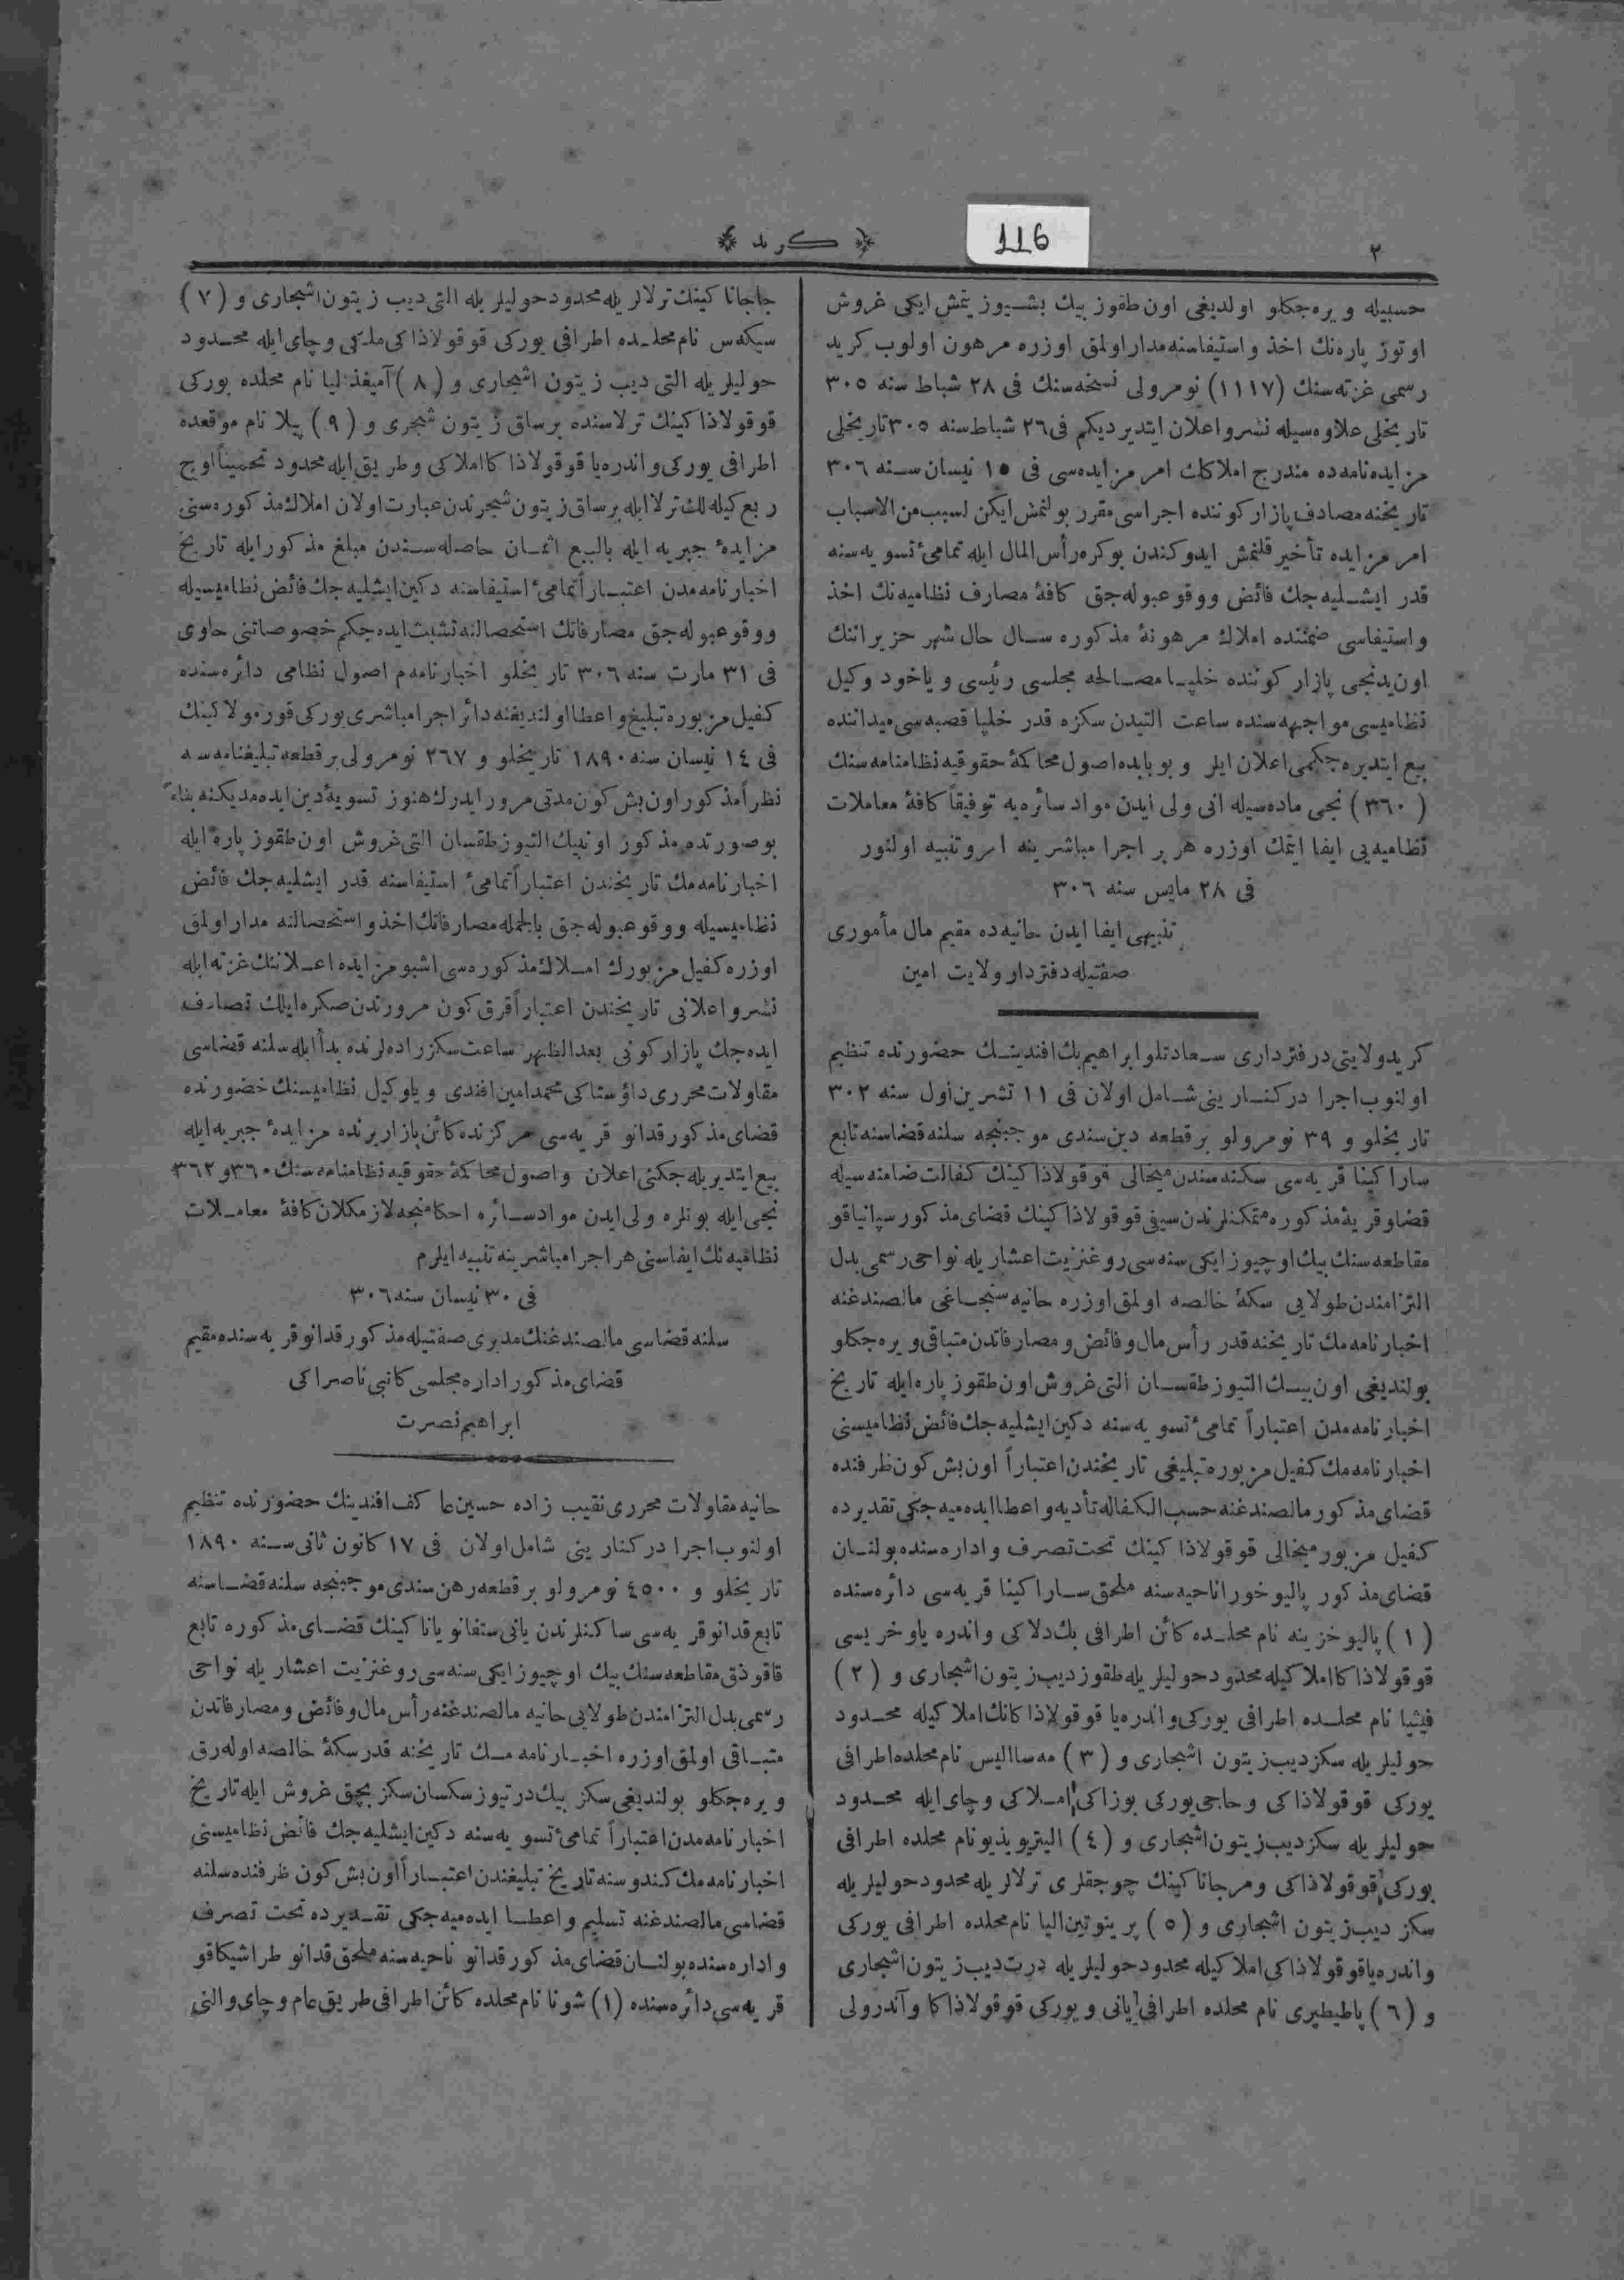 ٢
﴿ كريد ﴾
116
حسبيله ويره‌جكلو اولديغى اون طقوز بيك بشيوز يتمش ايكى غروش
اوتوز پاره‌نك اخذ واستيفاسنه مدار اولمق اوزره مرهون اولوب كريد
رسمى غزته‌سنك (١١١٧) نومرولى نسخه‌سنك فى ٢٨ شباط سنه ٣٠٥
تاريخلى علاوه‌سيله نشر و اعلان ايتديرديكم فى ٢٦ شباط سنه ٣٠٥ تاريخلى
مزايده‌نامه‌ده مندرج املاكك امر مزايده‌سى فى ١٥ نيسان سنه ٣٠٦
تاريخنه مصادف پازار كوننده اجراسى مقرر بولنمش ايكن لسبب من الاسباب
امر مزايده تأخير قلنمش ايدوكندن بوكره رأس المال ايله تمامئ تسويه‌سنه
قدر ايشليه‌جك فائض ووقوعبوله‌جق كافهٔ مصارف نظاميه‌نك اخذ
واستيفاسى ضمننده املاك مرهونهٔ مذكوره سال حال شهر حزيراننك
اون يدنجى پازار كوننده خلپا مصالحه مجلسى رئيسى وياخود وكيل
نظاميسى مواجهه‌سنده ساعت التيدن سكزه قدر خلپا قصبه‌سى ميداننده
بيع ايتديره‌جكمى اعلان ايلر وبوبابده اصول محاكمهٔ حقوقيه نظامنامه‌سنك
(٣٦٠) نجى ماده‌سيله انى ولى ايدن مواد سائره‌يه توفيقاً كافهٔ معاملات
نظاميه‌يى ايفا ايتمك اوزره هر بر اجرا مباشرينه امر وتنبيه اولنور
فى ٢٨ مايس سنه ٣٠٦
تنبيهى ايفا ايدن حانيه‌ده مقيم مال مأمورى
صفتيله دفتردار ولايت امين
كريد ولايتى دفتردارى سعادتلو ابراهيم بك افندينك حضورنده تنظيم
اولنوب اجرا دركنارينى شامل اولان فى ١١ تشرين اول سنه ٣٠٢
تاريخلو و ٣٩ نومرولو بر قطعه دين سندى موجبنجه سلنه قضاسنه تابع
ساراكينا قريه‌سى سكنه‌سندن ميخالى قوقولاذاكينك كفالت ضامنه‌سيله
قضا وقريهٔ مذكوره متمكنلرندن سيفى قوقولاذاكينك قضاى مذكور سپانياقو
مقاطعه‌سنك بيك اوچيوز ايكى سنه‌سى روغنزيت اعشاريله نواحى رسمى بدل
التزامندن طولايى سكهٔ خالصه اولمق اوزره حانيه سنجاغى مالصندغنه
اخبارنامه‌مك تاريخنه قدر رأس مال وفائض ومصارفاتدن متباقى ويره‌جكلو
بولنديغى اون بيك التيوز طقسان التى غروش اون طقوز پاره ايله تاريخ
اخبارنامه‌مدن اعتباراً تمامئ تسويه‌سنه دكين ايشليه‌جك فائض نظاميسنى
اخبارنامه‌مك كفيل مزبوره تبليغى تاريخندن اعتباراً اون بش كون ظرفنده
قضاى مذكور مالصندغنه حسب الكفاله تأديه واعطا ايده‌ميه‌جكى تقديرده
كفيل مزبور ميخالى قوقولاذاكينك تحت تصرف واداره‌سنده بولنان
قضاى مذكور پاليوخورا ناحيه‌سنه ملحق ساراكينا قريه‌سى دائره‌سنده
(١) پاليوخزينه نام محلده كائن اطرافى بك دلاكى واندره ياوخريسى
قوقولاذاكا املاكيله محدود حوليلريله طقوز ديب زيتون اشجارى و (٢)
فيثيا نام محلده اطرافى يوركى واندره يا قوقولاذاكانك املاكيله محدود
حوليلريله سكز ديب زيتون اشجارى و (٣) مه‌ساليس نام محلده اطرافى
يوركى قوقولاذاكى وحاجى يوركى بوزاكى املاكى وچاى ايله محدود
حوليلريله سكز ديب زيتون اشجارى و (٤) اليتريويذيو نام محلده اطرافى
يوركى قوقولاذاكى ومرجاناكينك چوجقلرى ترلالريله محدود حوليلريله
سكز ديب زيتون اشجارى و (٥) پرينوتين اليا نام محلده اطرافى يوركى
واندره يا قوقولاذاكى املاكيله محدود حوليلريله درت ديب زيتون اشجارى
و (٦) پاطيطيرى نام محلده اطرافى يانى ويوركى قوقولاذاكا وآندرولى
جاجاناكينك ترلالريله محدود حوليلريله التى ديب زيتون اشجارى و (٧)
سيكه‌س نام محلده اطرافى يوركى قوقولاذاكى ملكى وچاى ايله محدود
حوليلريله التى ديب زيتون اشجارى و (٨) آميغذاليا نام محلده يوركى
قوقولاذاكينك ترلاسنده برساق زيتون شجرى و (٩) پيلا نام موقعده
اطرافى يوركى واندره يا قوقولاذاكا املاكى وطريق ايله محدود تخميناً اوچ
ربع كيله‌لك ترلا ايله برساق زيتون شجرندن عبارت اولان املاك مذكوره‌سنى
مزايدهٔ جبريه ايله بالبيع اثمان حاصله‌سندن مبلغ مذكور ايله تاريخ
اخبارنامه‌مدن اعتباراً تمامئ استيفاسنه دكين ايشليه‌جك فائض نظاميسيله
ووقوعبوله‌جق مصارفاتك استحصالنه تشبث ايده‌جكم خصوصاتنى حاوى
فى ٣١ مارت سنه ٣٠٦ تاريخلو اخبارنامه‌م اصول نظامى دائره‌سنده
كفيل مزبوره تبليغ واعطا اولنديغنه دائر اجرا مباشرى يوركى قورمولاكينك
فى ١٤ نيسان سنه ١٨٩٠ تاريخلو و ٢٦٧ نومرولى بر قطعه تبليغنامه‌سنه
نظراً مذكور اون بش كون مدتى مرور ايدرك هنوز تسويهٔ دين ايده‌مديكنه بناءً
بوصورتده مذكور اون بيك التيوز طقسان التى غروش اون طقوز پاره ايله
اخبارنامه‌مك تاريخندن اعتباراً تمامئ استيفاسنه قدر ايشليه‌جك فائض
نظاميسيله ووقوعبوله‌جق بالجمله مصارفاتك اخذ واستحصالنه مدار اولمق
اوزره كفيل مزبورك املاك مذكوره‌سى اشبو مزايده اعلاننك غزته ايله
نشر واعلانى تاريخندن اعتباراً قرق كون مرورندن صكره ايلك تصادف
ايده‌جك پازار كونى بعدالظهر ساعت سكز راده‌لرنده بدأ ايله سلنه قضاسى
مقاولات محررى داؤستاكى محمد امين افندى وياو كيل نظاميسنك حضورنده
قضاى مذكور قدانو قريه‌سى مركزنده كائن پازار يرنده مزايدهٔ جبريه ايله
بيع ايتديريله‌جكنى اعلان واصول محاكمهٔ حقوقيه نظامنامه‌سنك ٣٦٠ و ٣٦٢
نجى ايله بونلره ولى ايدن مواد سائره احكامنجه لازمكلان كافهٔ معاملات
نظاميه‌نك ايفاسنى هر اجرا مباشرينه تنبيه ايلرم
فى ٣٠ نيسان سنه ٣٠٦
سلنه قضاسى مالصندغنك مديرى صفتيله مذكور قدانو قريه‌سنده مقيم
قضاى مذكور اداره مجلسى كاتبى ناصراكى
ابراهيم نصرت
حانيه مقاولات محررى نقيب زاده حسين عاكف افندينك حضورنده تنظيم
اولنوب اجرا دركنارينى شامل اولان فى ١٧ كانون ثانى سنه ١٨٩٠
تاريخلو و ٤٥٠٠ نومرولو بر قطعه رهن سندى موجبنجه سلنه قضاسنه
تابع قدانو قريه‌سى ساكنلرندن يانى ستفانو ياناكينك قضاى مذكوره تابع
قاقوذق مقاطعه‌سنك بيك اوچيوز ايكى سنه‌سى روغنزيت اعشاريله نواحى
رسمى بدل التزامندن طولايى حانيه مالصندغنه رأس مال وفائض ومصارفاتدن
متباقى اولمق اوزره اخبارنامه‌مك تاريخنه قدر سكهٔ خالصه اوله‌رق
ويره‌جكلو بولنديغى سكز بيك درتيوز سكسان سكز بچق غروش ايله تاريخ
اخبارنامه‌مدن اعتباراً تمامئ تسويه‌سنه دكين ايشليه‌جك فائض نظاميسنى
اخبارنامه‌مك كندوسنه تاريخ تبليغندن اعتباراً اون بش كون ظرفنده سلنه
قضاسى مالصندغنه تسليم واعطا ايده‌ميه‌جكى تقديرده تحت تصرف
واداره‌سنده بولنان قضاى مذكور قدانو ناحيه‌سنه ملحق قدانو طراشيكاقو
قريه‌سى دائره‌سنده (١) شونا نام محلده كائن اطرافى طريق عام وچاى والنى